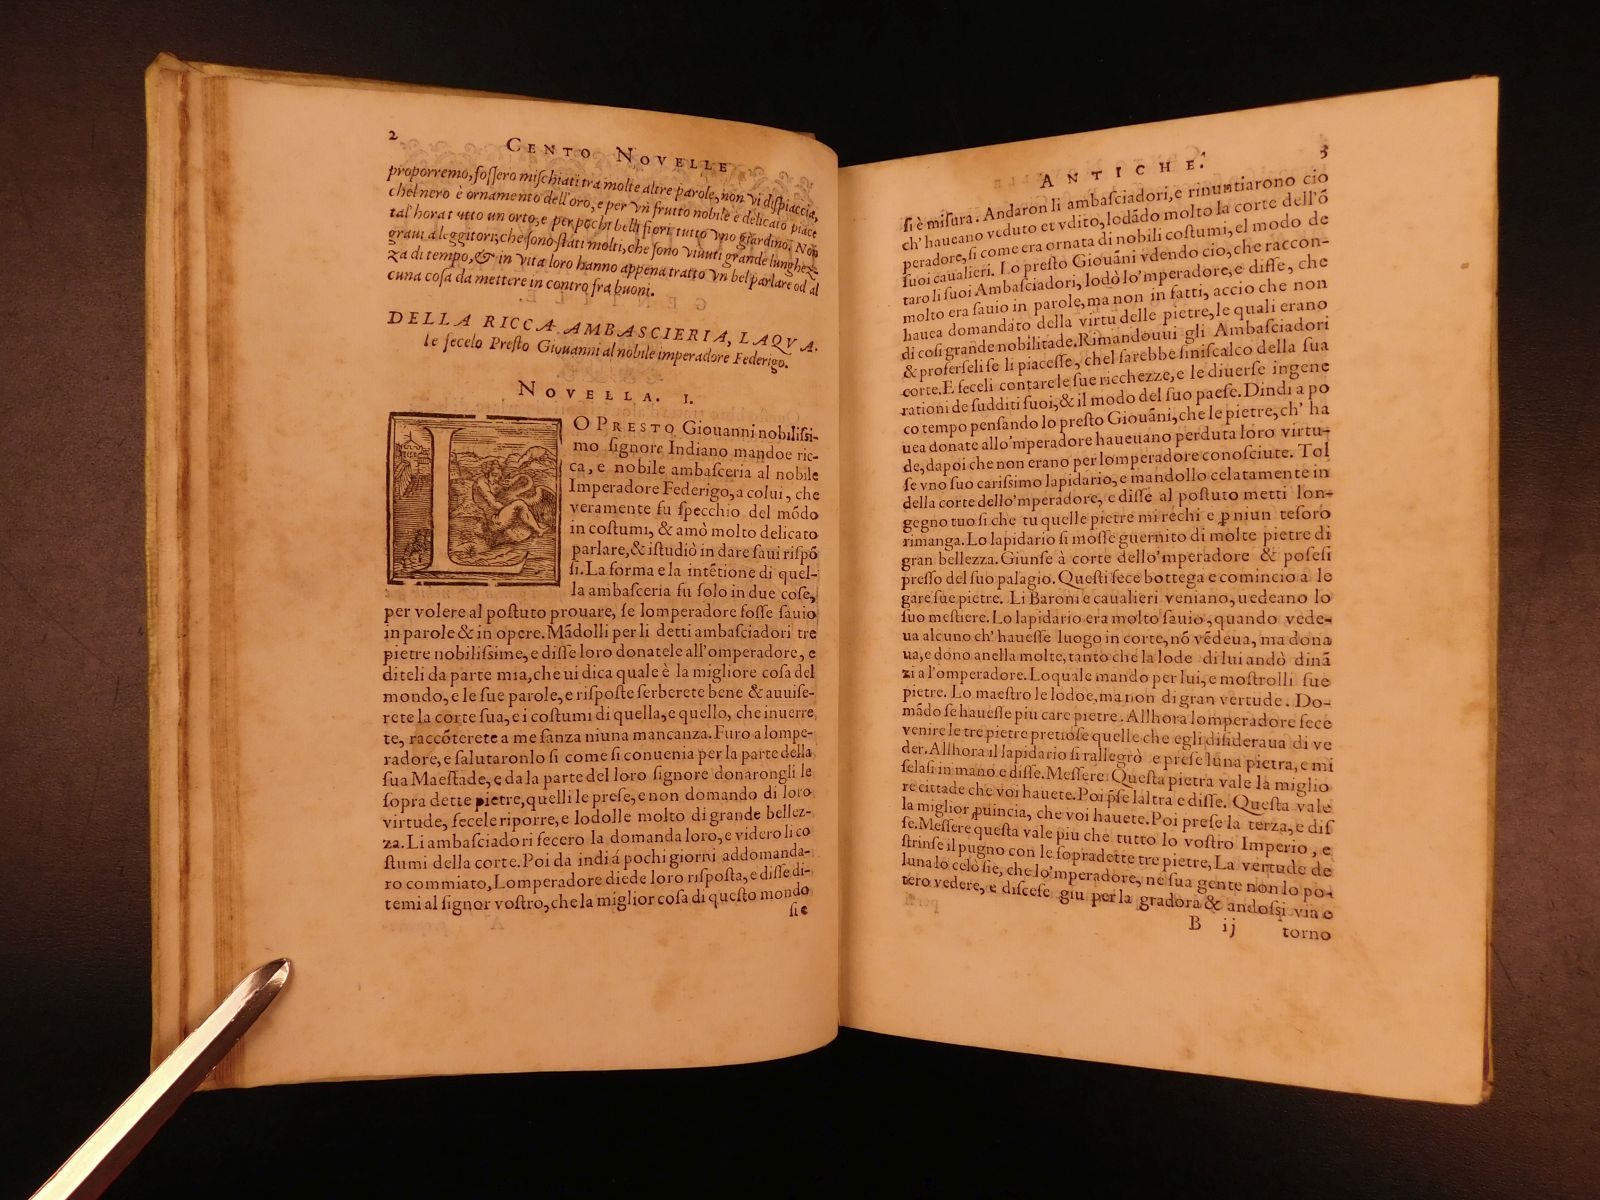 2
CENTO NOVELLE
proporremo, fossero mischiati tra molte altre parole, non vi dispiaccia,
chel nero è ornamento dell'oro, e per vn frutto nobile e delicato piace
tal'hora tutto un orto, e per pochi belli fiori tutto vno giardino. Non
graui a leggitori; che sono stati molti, che sono viuuti grande lunghez-
za di tempo, & in vita loro hanno appena tratto vn bel parlare od al
cuna cosa da mettere in contro fra buoni.
DELLA RICCA AMBASCIERIA, LAQVA-
le fecelo Presto Giouanni al nobile imperadore Federigo.
NOVELLA. I.
LO PRESTO Giouanni nobilissi-
mo signore Indiano mandoe ric-
ca, e nobile ambasceria al nobile
Imperadore Federigo, a colui, che
veramente fu specchio del mōdo
in costumi, & amò molto delicato
parlare, & istudiò in dare saui rispō
si. La forma e la intētione di quel-
la ambasceria fu solo in due cose,
per volere al postuto prouare, se lomperadore fosse sauio
in parole & in opere. Mādolli per li detti ambasciadori tre
pietre nobilissime, e disse loro donatele all'omperadore, e
diteli da parte mia, che ui dica quale è la migliore cosa del
mondo, e le sue parole, e risposte serberete bene & auuise-
rete la corte sua, e i costumi di quella, e quello, che inuerre
te, raccōterete a me sanza niuna mancanza. Furo a lompe-
radore, e salutaronlo si come si conuenia per la parte della
sua Maestade, e da la parte del loro signore donarongli le
sopra dette pietre, quelli le prese, e non domando di loro
virtude, fecele riporre, e lodolle molto di grande bellez-
za. Li ambasciadori fecero la domanda loro, e videro li co
stumi della corte. Poi da indi á pochi giorni addomanda-
ro commiato, Lomperadore diede loro risposta, e disse di-
temi al signor vostro, che la miglior cosa di questo mondo
si e
ANTICHE.
3
si è misura. Andaron li ambasciadori, e rinuntiarono cio
ch' haueano veduto et vdito, lodādo molto la corte dell'ō
peradore, si come era ornata di nobili costumi, el modo de
suoi caualieri. Lo presto Giouāni vdendo cio, che raccon-
taro li suoi Ambasciadori, lodò lo'mperadore, e disse, che
molto era sauio in parole, ma non in fatti, accio che non
hauea domandato della virtu delle pietre, le quali erano
di cosi grande nobilitade. Rimandouui gli Ambasciadori
& proferseli se li piacesse, chel sarebbe siniscalco della sua
corte. E feceli contare le sue ricchezze, e le diuerse ingene
rationi de sudditi suoi, & il modo del suo paese. Dindi a po
co tempo pensando lo presto Giouāni, che le pietre, ch' ha
uea donate allo'mperadore haueuano perduta loro virtu-
de, dapoi che non erano per lomperadore conosciute. Tol
se vno suo carissimo lapidario, e mandollo celatamente in
della corte dello'mperadore, e disse al postuto metti lon-
gegno tuo si che tu quelle pietre mi rechi e ꝑ niun tesoro
rimanga. Lo lapidario si mosse guernito di molte pietre di
gran bellezza. Giunse à corte dello'mperadore & posesi
presso del suo palagio. Questi fece bottega e comincio a le
gare sue pietre. Li Baroni e caualieri veniano, uedeano lo
suo mestiere. Lo lapidario era molto sauio, quando vede-
ua alcuno ch' hauesse luogo in corte, nō vēdeua, ma dona
ua, e dono anella molte, tanto che la lode di lui andò dinā
zi a l'omperadore. Lo quale mando per lui, e mostrolli sue
pietre. Lo maestro le lodoe, ma non di gran vertude. Do-
mādo se hauesse piu care pietre. Allhora lomperadore fece
venire le tre pietre pretiose quelle che egli disideraua di ve
der. Allhora il lapidario si rallegrò e prese luna pietra, e mi
selasi in mano e disse. Messere: Questa pietra vale la miglio
re cittade che voi hauete. Poi ꝑse laltra e disse. Questa vale
la miglior ꝓuincia, che voi hauete. Poi prese la terza, e dis
se. Messere questa vale più che tutto lo vostro Imperio, e
strinse il pugno con le sopradette tre pietre, La vertude de
luna lo celò sie, che lo'mperadore, ne sua gente non lo po-
tero vedere, e discese giu per la gradora & andossi via e
B ij
torno